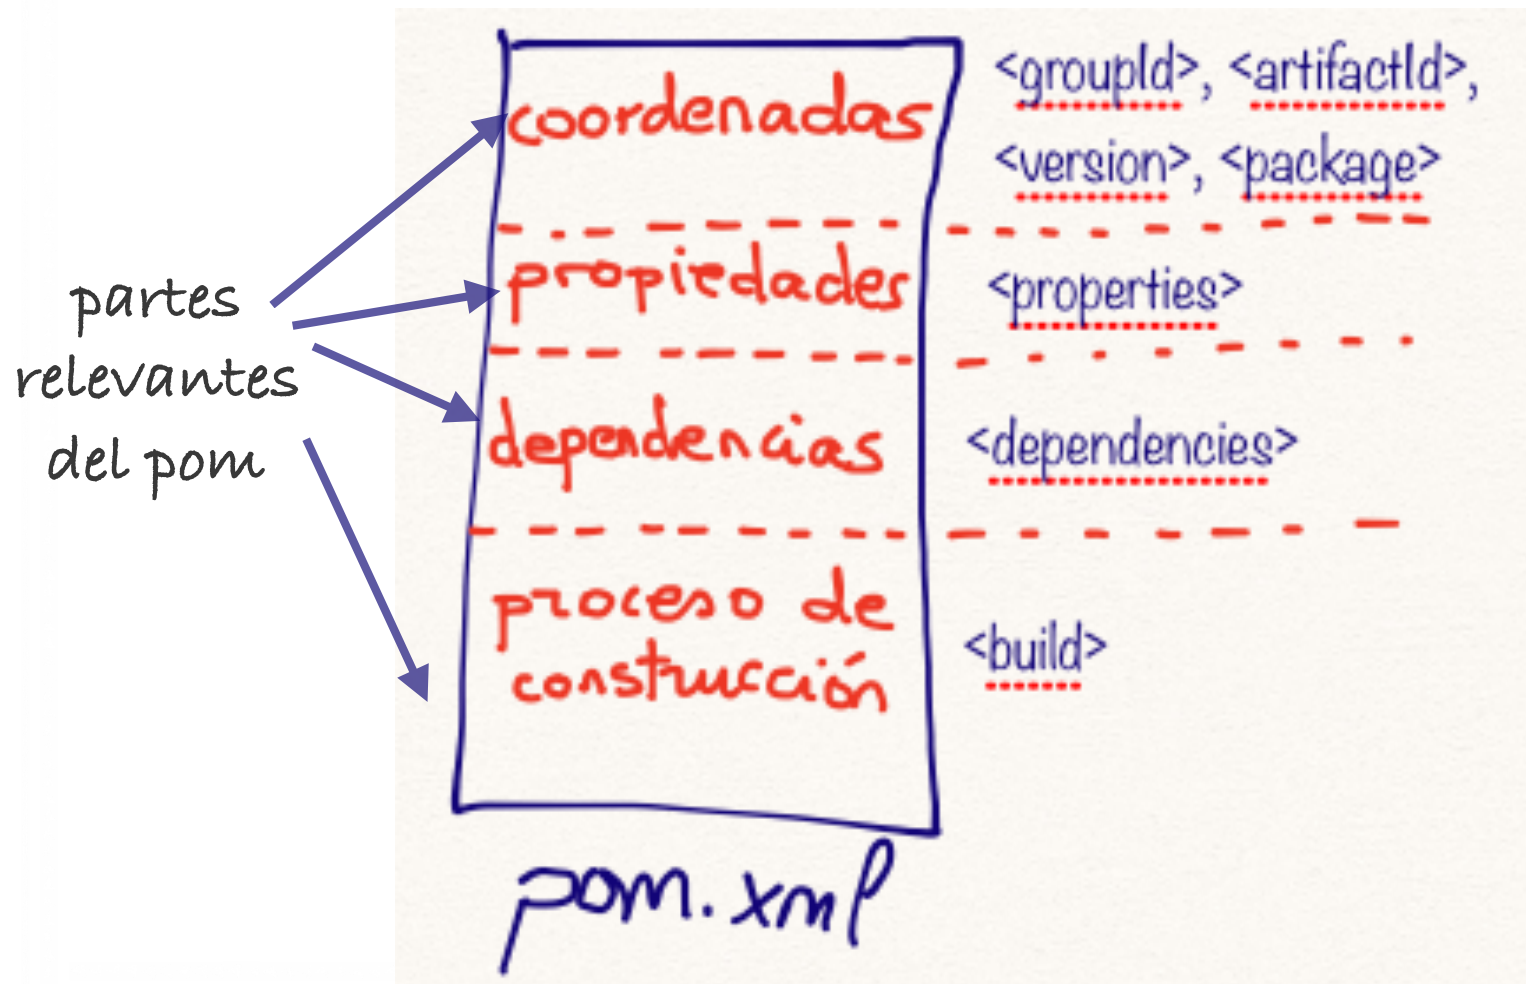 partes
relevantes
del pom
coordenadas
<groupId>, <artifactId>,
<version>, <package>
propiedades
<properties>
dependencias
<dependencies>
proceso de
construcción
<build>
pom.xml